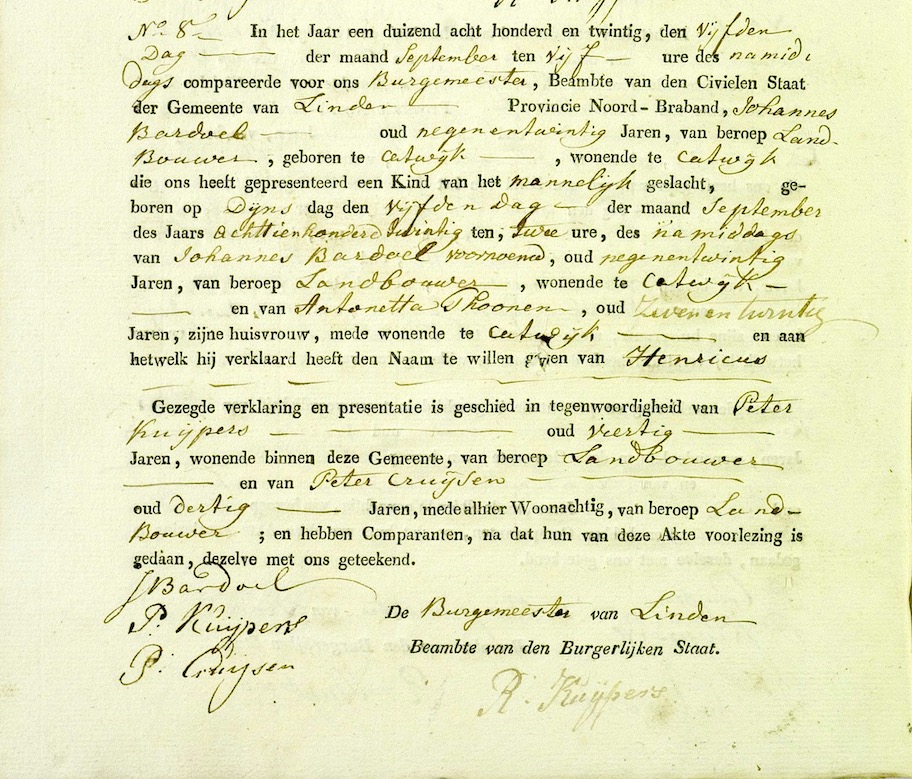 No. 8. In het Jaar een duizend acht honderd en twintig, den Vijfden
Dag der maand September ten Vijf ure des namid,
dags compareerde voor ons Burgemeester, Beämbte van den Civielen Staat
der Gemeente van Linden Provincie Noord-Braband, Johannes
Bardoel oud negenentwintig Jaren, van beroep Land-
Bouwer, geboren te Catwijk, wonende te Catwijk
die ons heeft gepresenteerd een Kind van het mannelijk geslacht, ge-
boren op Dijns dag den Vijfden Dag der maand September
des Jaars Achttienhonderd twintig ten, twee ure, des namiddags
van Johannes Bardoel voornoemd, oud negenentwintig
Jaren, van beroep Landbouwer, wonende te Catwijk
en van Antonetta Thoonen, oud Zevenentwintig
Jaren, zijne huisvrouw, mede wonende te Catwijk en aan
hetwelk hij verklaard heeft den Naam te willen geven van Henricus
Gezegde verklaring en presentatie is geschied in tegenwoordigheid van Peter
Kuijpers oud Viertig
Jaren, wonende binnen deze Gemeente, van beroep Landbouwer
en van Peter Cruijsen
oud Dertig Jaren, mede alhier Woonachtig, van beroep Land-
Bouwer; en hebben Comparanten, na dat hun van deze Akte voorlezing is
gedaan, dezelve met ons geteekend.
J Bardoel
P. Kuijpers De Burgemeester van Linden
Beambte van den Burgerlijken Staat.
P. Cruijsen
R. Kuijpers